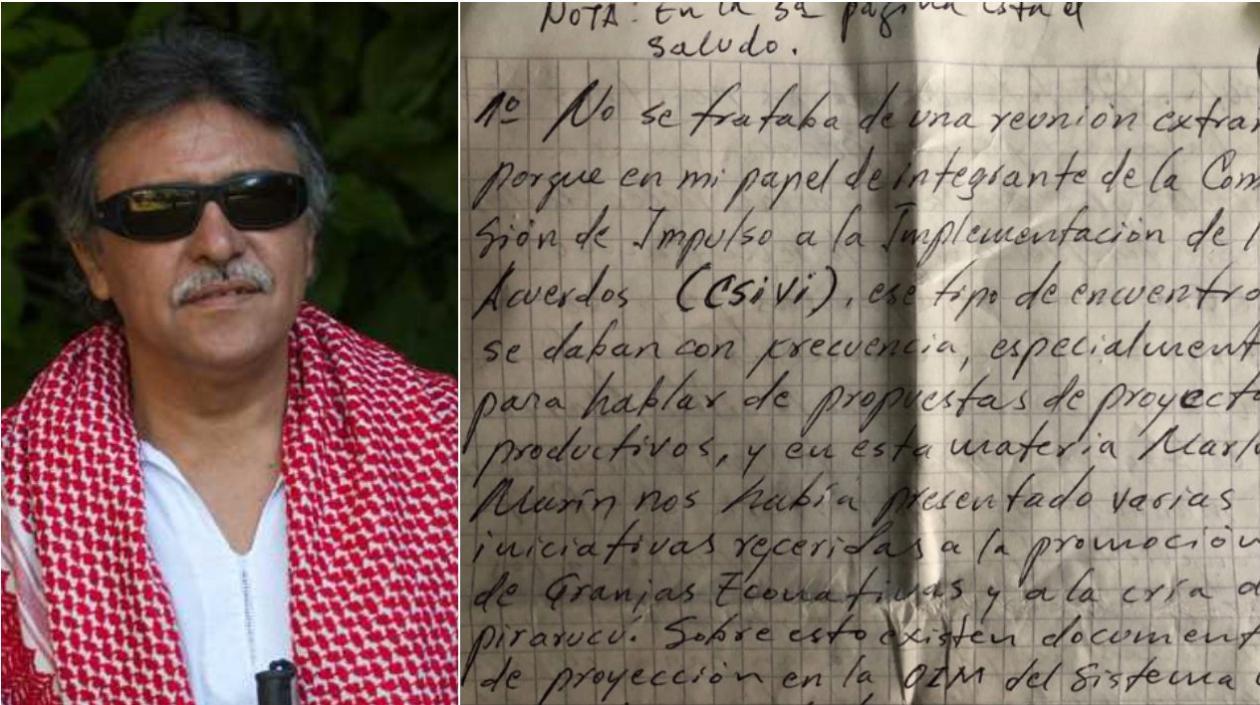 NOTA: En la 5a página está el
saludo.
1º No se trataba de una reunión extra
porque en mi papel de integrante de la Com
sión de Impulso a la Implementación de l
Acuerdos (CSIVI), ese tipo de encuentro
se daban con frecuencia, especialment
para hablar de propuestas de proyect
productivos, y en esta materia Marl
Marín nos había presentado varias
iniciativas referidas a la promoción
de Granjas Econativas y a la cría d
pirarucú. Sobre esto existen document
de proyección en la OIM del Sistema